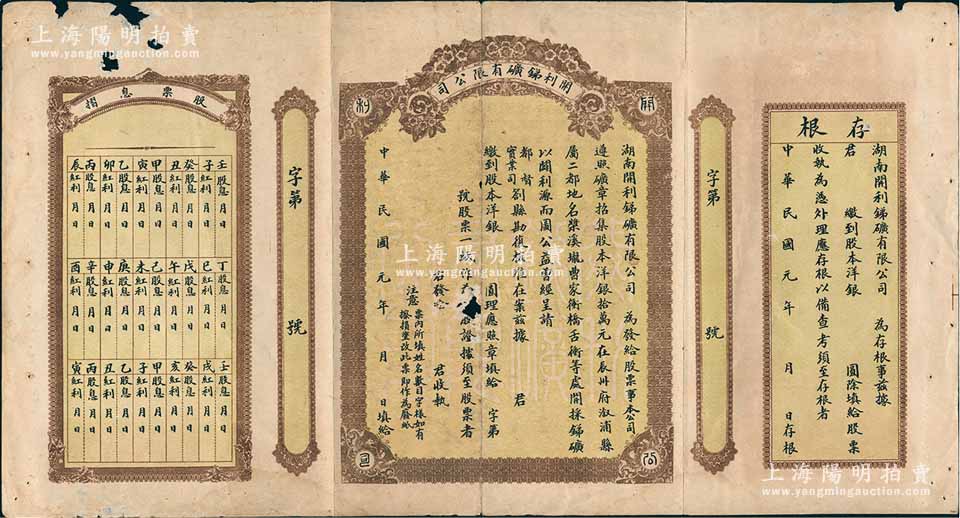 上海陽明拍賣
www.yangmingauction.com
存根
湖南開利銻礦有限公司 為存根事茲據
君 繳到股本洋銀 圓除填給股票
收執為憑外理應存根以備查考須至存根者
中華民國元年 月 日存根
字第 號
開利銻礦有限公司
開利公司
湖南開利銻礦有限公司 為發給股票事本公司
遵照礦章招集股本洋銀拾萬元在辰州府溆浦縣
屬二都地名槳溪壠曹家衝橋舌衝等處開採銻礦
以闢利源而圖公益業經呈請
都督
實業司劄縣勘復核准在案茲據 君
繳到股本洋銀 圓理應照章填給 字第
號股票一 證據須至股票者
君收執
注意 票內所填姓名數目字樣如有
損塗改此票即作為廢紙
中華民國元年 月 日填給
字第 號
股票息摺
壬股息 月 日
子紅利 月 日
癸股息 月 日
丑紅利 月 日
甲股息 月 日
寅紅利 月 日
乙股息 月 日
卯紅利 月 日
丙股息 月 日
辰紅利 月 日
丁股息 月 日
巳紅利 月 日
戊股息 月 日
午紅利 月 日
己股息 月 日
未紅利 月 日
庚股息 月 日
申紅利 月 日
辛股息 月 日
酉紅利 月 日
壬股息 月 日
戌紅利 月 日
癸股息 月 日
亥紅利 月 日
甲股息 月 日
子紅利 月 日
乙股息 月 日
丑紅利 月 日
丙股息 月 日
寅紅利 月 日
上海陽明拍賣
www.yangmingauction.com
上海陽明拍賣
www.yangmingauction.com
上海陽明拍賣
www.yangmingauction.com
上海陽明拍賣
www.yangmingauction.com